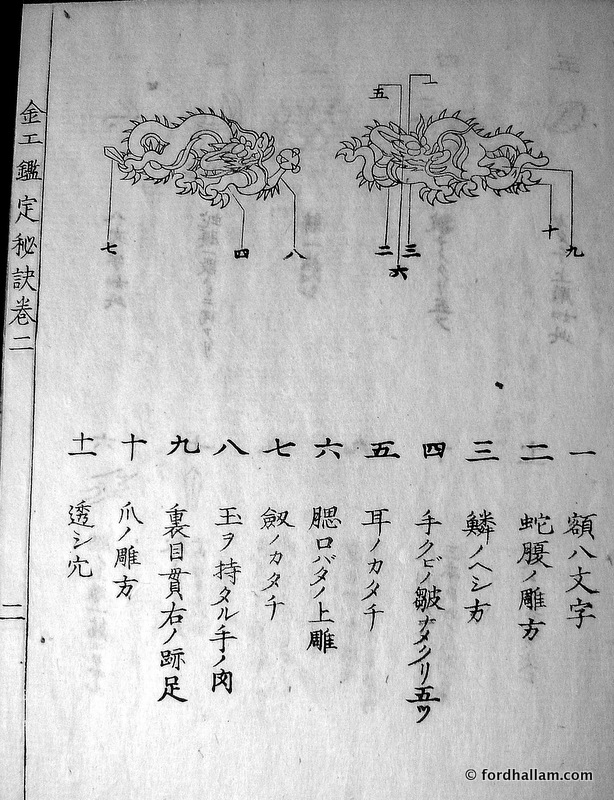 一
五
二
三
六
十
九
七
四
八
一 額八文字
二 蛇腹ノ雕方
三 鱗ノヘシ方
四 手クビノ皺 五ツ
五 耳ノカタチ
六 腮口バタノ上雕
七 劔ノカタチ
八 玉ヲ持タル手ノ肉
九 裏目貫右ノ跡足
十 爪ノ雕方
十一 透シ穴
金工鑑定秘訣巻二
二
© fordhallam.com